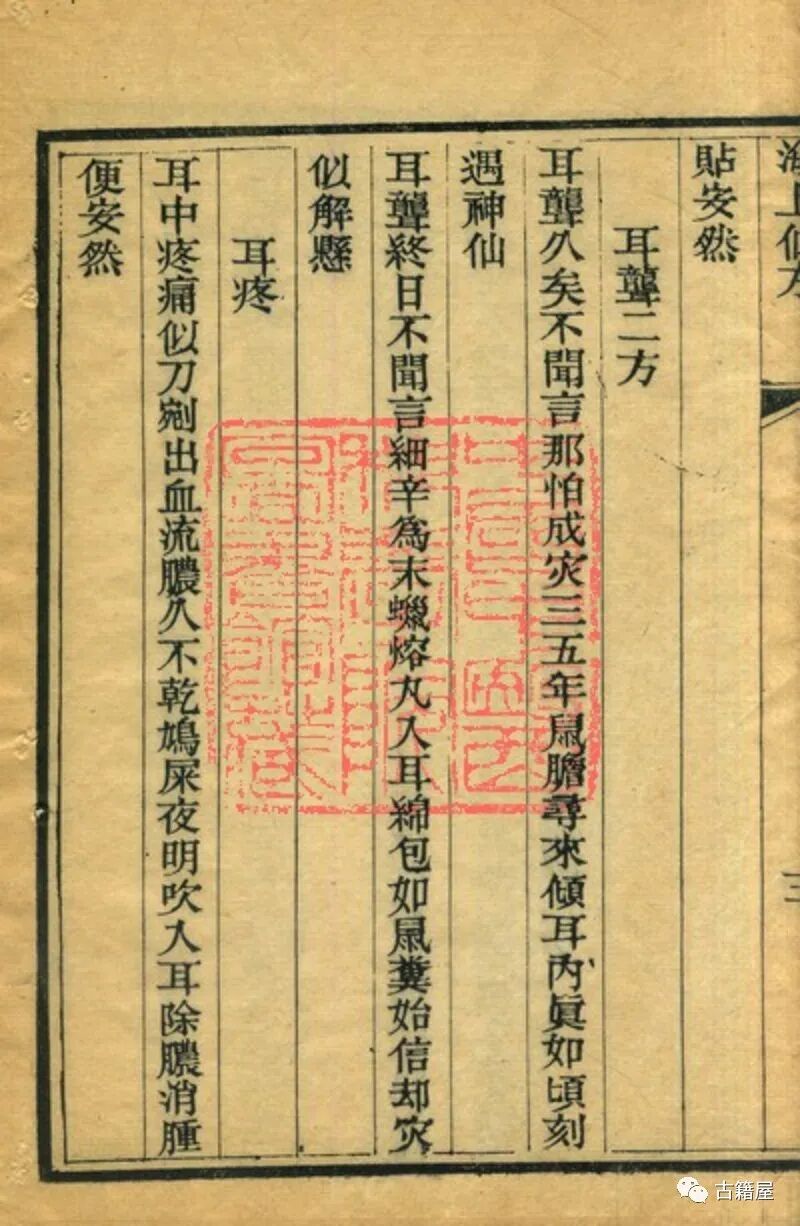 海上仙方
三
貼安然
耳聾二方
耳聾久矣不聞言那怕成灾三五年鼠膽尋來傾耳內眞如頃刻
遇神仙
耳聾終日不聞言細辛爲末蠟熔丸入耳綿包如鼠糞始信却灾
似解懸
耳疼
耳中疼痛似刀剜出血流膿久不乾鳩屎夜明吹入耳除膿消腫
便安然
古籍屋